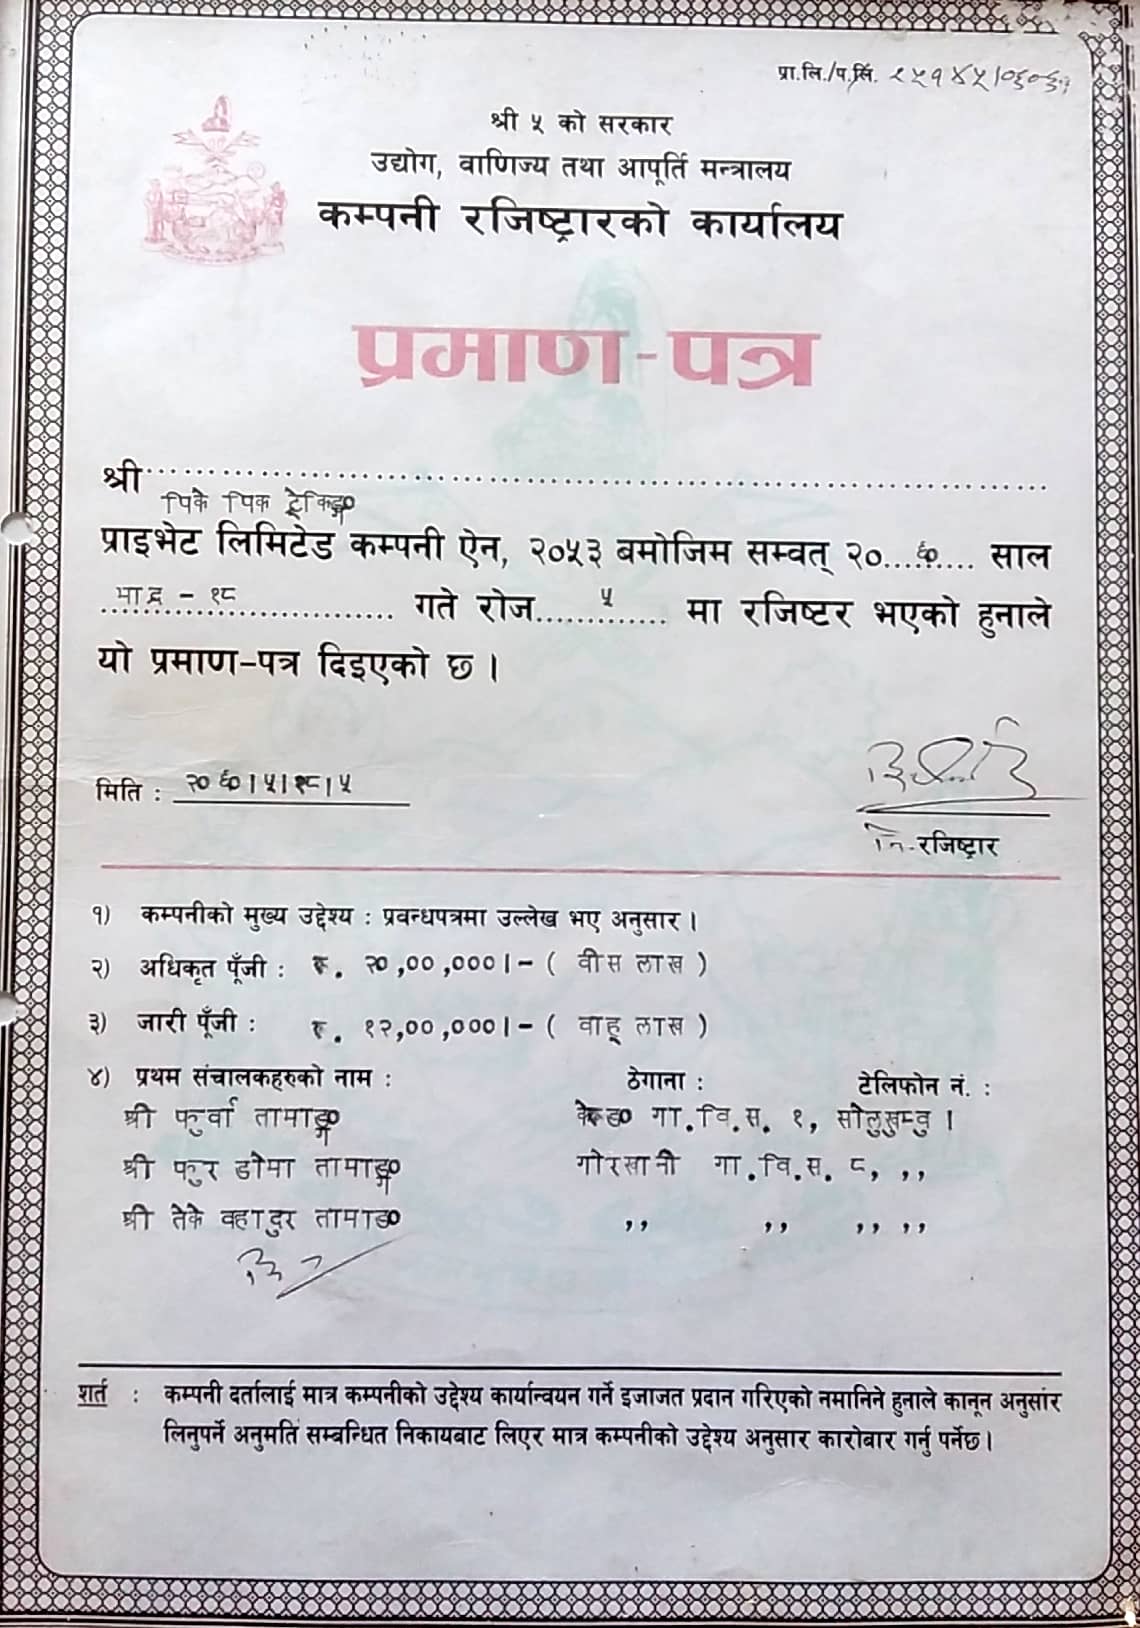 प्रा.लि./प.सं. २५१४५।०६०६१
श्री ५ को सरकार
उद्योग, वाणिज्य तथा आपूर्ति मन्त्रालय
कम्पनी रजिष्ट्रारको कार्यालय
प्रमाण-पत्र
श्री
पिके पिक ट्रेकिङ्ग
प्राइभेट लिमिटेड कम्पनी ऐन, २०५३ बमोजिम सम्वत् २०...६०... साल
भाद्र - १८ गते रोज ५ मा रजिष्टर भएको हुनाले
यो प्रमाण-पत्र दिइएको छ ।
मिति : २०६०।५।१८।५
नि.रजिष्ट्रार
१) कम्पनीको मुख्य उद्देश्य : प्रबन्धपत्रमा उल्लेख भए अनुसार ।
२) अधिकृत पूँजी : रु. २०,००,०००।- ( वीस लाख )
३) जारी पूँजी : रु. १२,००,०००।- ( वाह्र लाख )
४) प्रथम संचालकहरुको नाम : ठेगाना : टेलिफोन नं. :
श्री फुर्वा तामाङ्ग गा.वि.स. १, सोलुखुम्वु ।
श्री फुर डोमा तामाङ्ग गोरखानी गा.वि.स. ८, ,,
श्री तेके वहादुर तामाङ ,, ,, ,, ,,
शर्त : कम्पनी दर्तालाई मात्र कम्पनीको उद्देश्य कार्यान्वयन गर्ने इजाजत प्रदान गरिएको नमानिने हुनाले कानून अनुसार
लिनुपर्ने अनुमति सम्बन्धित निकायबाट लिएर मात्र कम्पनीको उद्देश्य अनुसार कारोबार गर्नु पर्नेछ ।